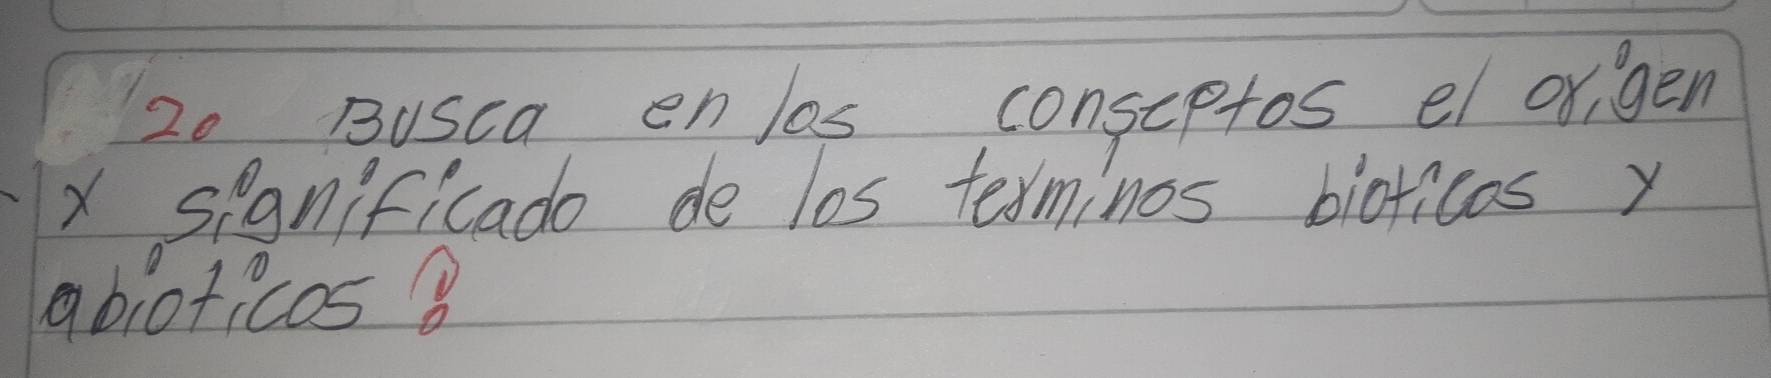 20 Busca en los conseptos el origen
y significado de los terminos bioticos y
abioticos?